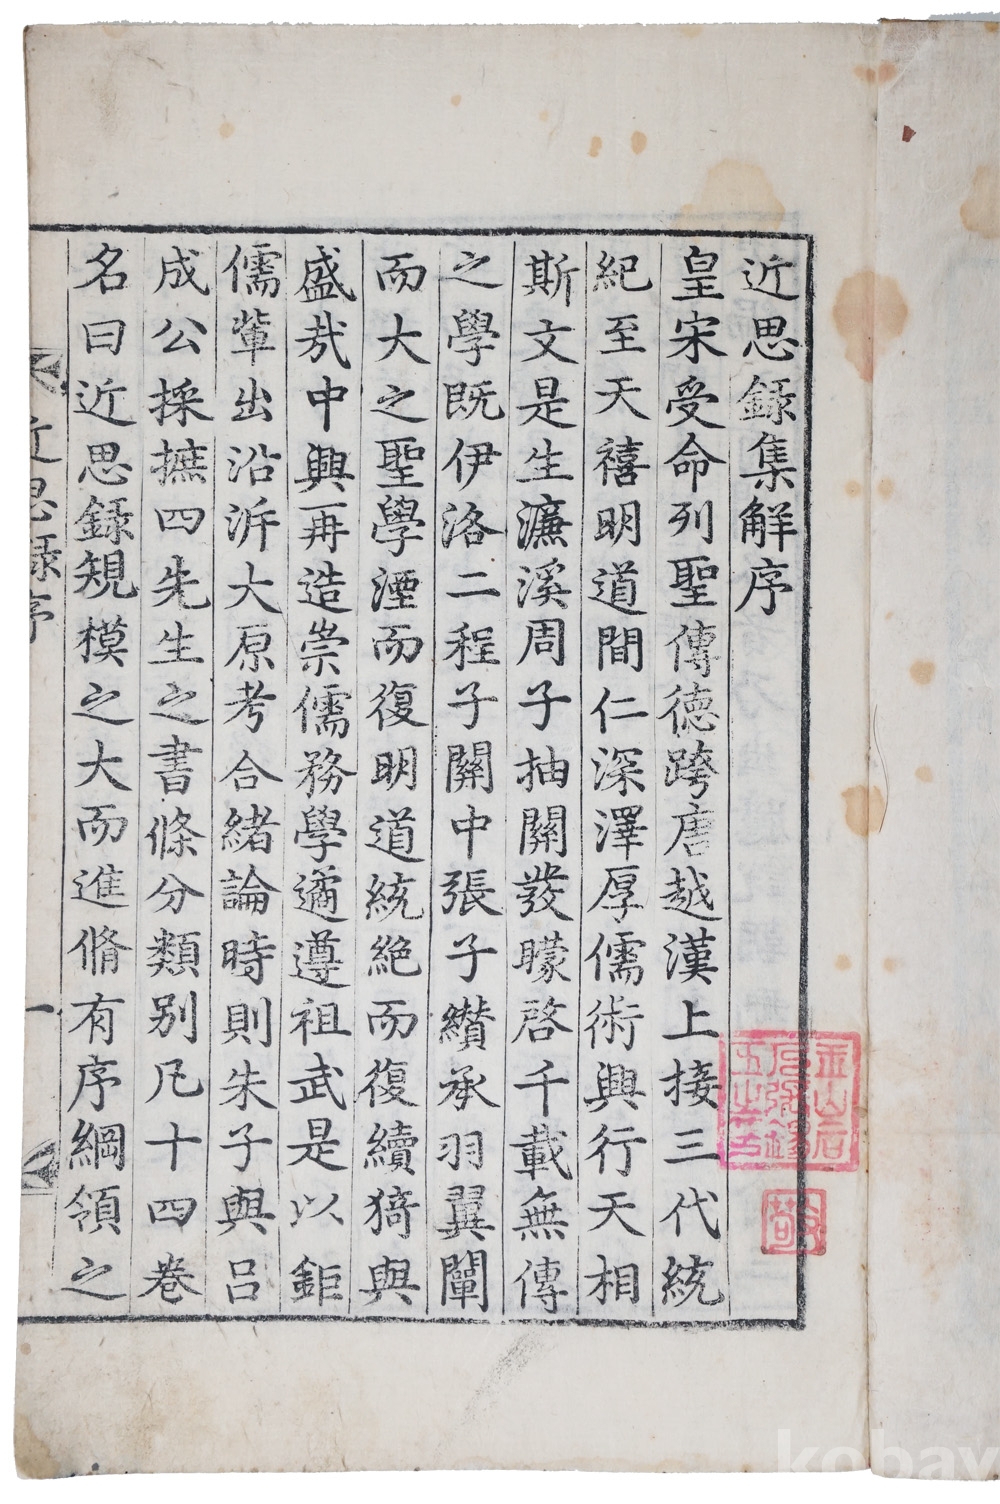 近思録集解序
皇宋受命列聖傳徳跨唐越漢上接三代統
紀至天禧明道間仁深澤厚儒術興行天相
斯文是生濂溪周子抽關發矇啓千載無傳
之學既伊洛二程子關中張子纘承羽翼闡
而大之聖學湮而復明道統絶而復續猗與
盛㢤中興再造崇儒務學遹遵祖武是以鉅
儒輩出沿泝大原考合緒論時則朱子與呂
成公採摭四先生之書條分類别凡十四卷
名曰近思録規模之大而進脩有序綱領之
近思録序
一
敬
kobay